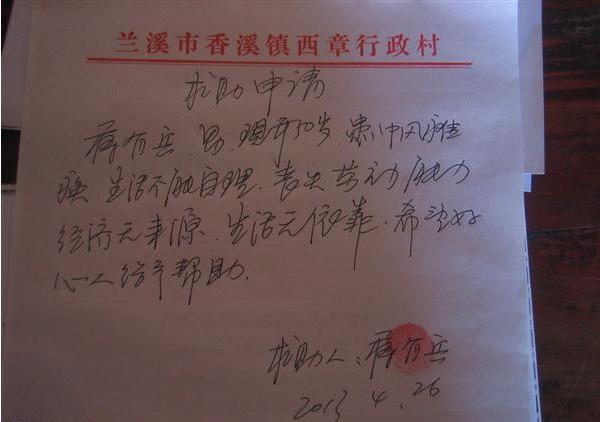 兰溪市香溪镇西章行政村
求助申请
蒋有兵，男，现年50岁，患中风瘫
痪，生活不能自理，丧失劳动能力
经济无来源，生活无依靠，希望好
心人给予帮助.
求助人：蒋有兵
2013 4.26